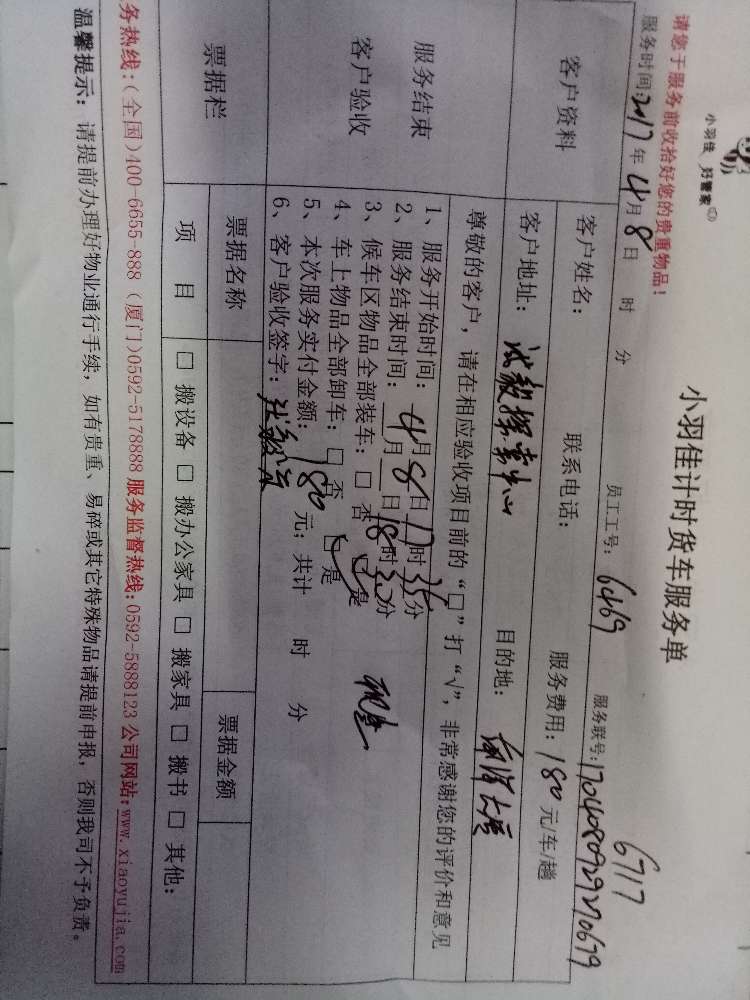 小羽佳 好管家
小羽佳计时货车服务单
请您于服务前收拾好您的贵重物品!
6717
服务时间:2017年4月8日 时 分 员工工号: 6469 服务联号:
客户资料
客户姓名: 联系电话: 服务费用: 180元/车/趟
客户地址: 目的地:
服务结束
客户验收
尊敬的客户, 请在相应验收项目前的“□”打“√”, 非常感谢您的评价和意见
1、服务开始时间: 4月8日17时35分
2、服务结束时间: 月 日18时30分
3、候车区物品全部装车: □ 否 □ 是
4、车上物品全部卸车: □ 否 □ 是
5、本次服务实付金额: 180元; 共计 时 分
6、客户验收签字:
票据栏
票据名称 票据金额
项 目 □ 搬设备 □ 搬办公家具 □ 搬家具 □ 搬书 □ 其他:
务热线:(全国)400-6655-888 (厦门)0592-5178888 服务监督热线:0592-5888123 公司网站:www.xiaoyujia.com
温馨提示: 请提前办理好物业通行手续, 如有贵重、易碎或其它特殊物品请提前申报, 否则我司不予负责。